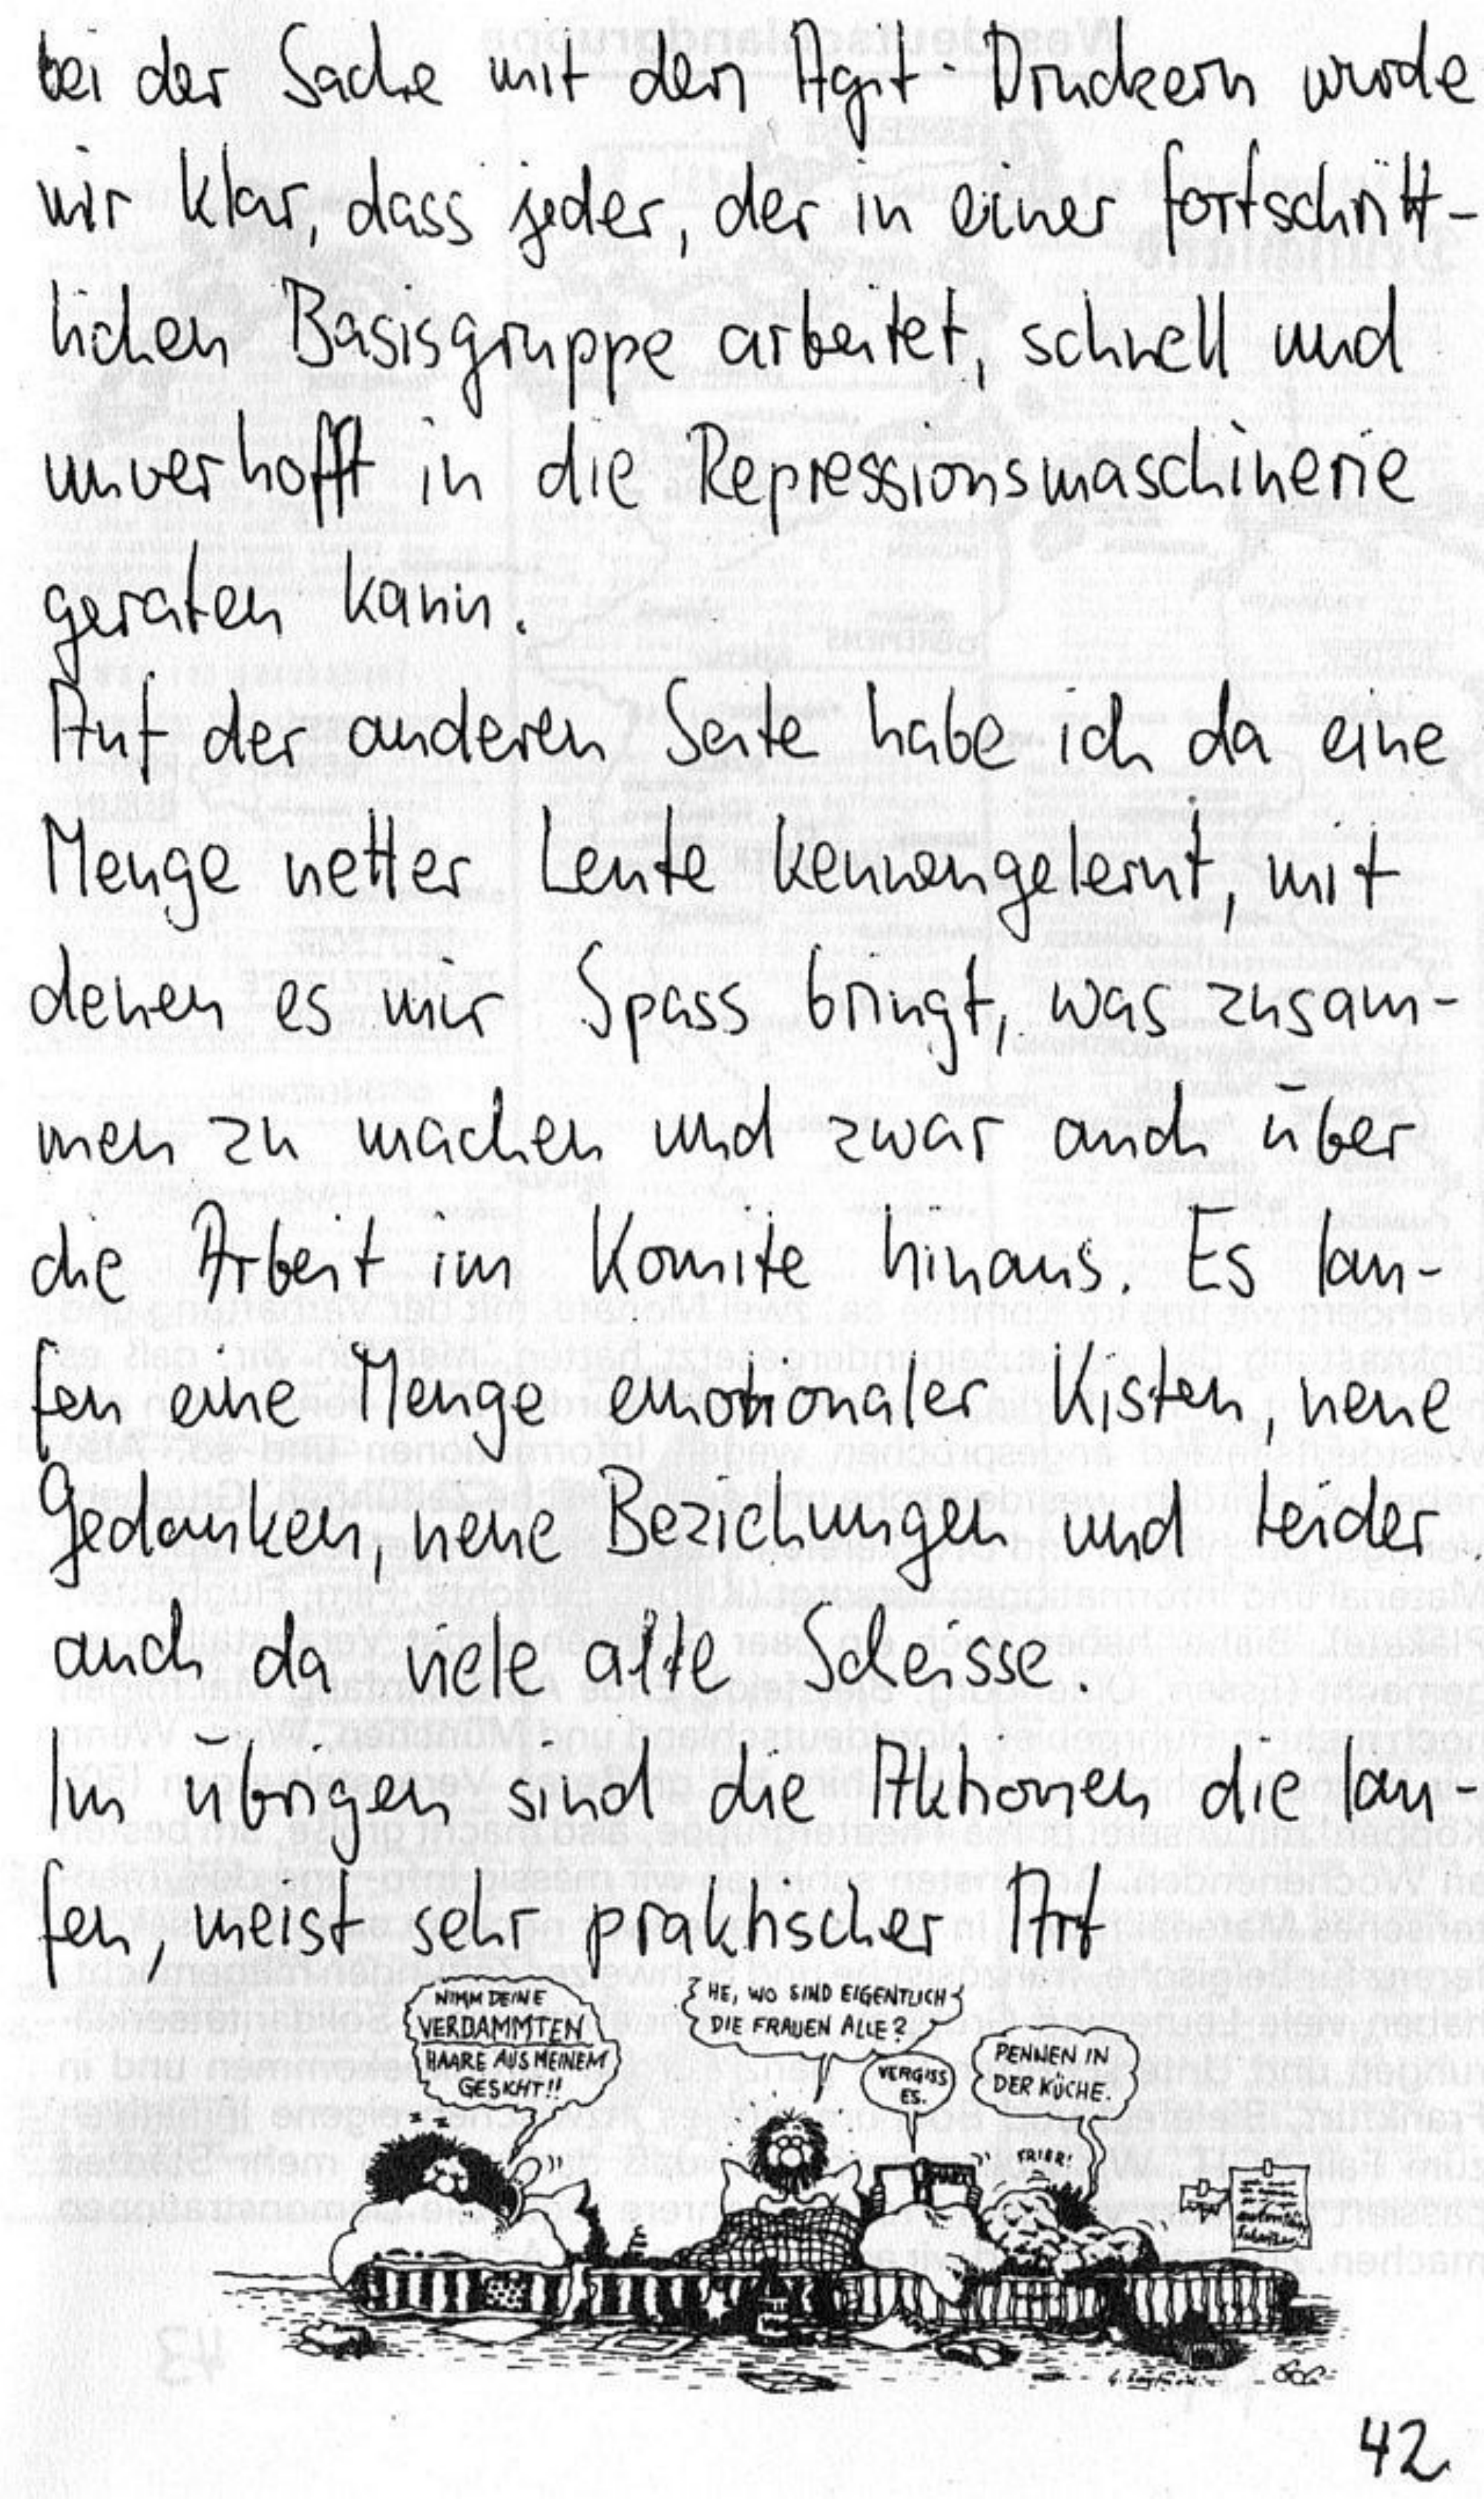 bei der Sache mit den Agit-Druckern wurde
mir klar, dass jeder, der in einer fortschritt-
lichen Basisgruppe arbeitet, schnell und
unverhofft in die Repressionsmaschinerie
geraten kann.
Auf der anderen Seite habe ich da eine
Menge netter Leute kennengelernt, mit
denen es mir Spass bringt, was zusam-
men zu machen und zwar auch über
die Arbeit im Komite hinaus. Es lau-
fen eine Menge emotionaler Kisten, neue
Gedanken, neue Beziehungen und leider
auch da viele alte Scheisse.
Im übrigen sind die Aktionen die lau-
fen, meist sehr praktischer Art
NIMM DEINE
VERDAMMTEN
HAARE AUS MEINEM
GESICHT!!
HE, WO SIND EIGENTLICH
DIE FRAUEN ALLE?
VERGISS
ES.
PENNEN IN
DER KÜCHE.
FRIER!
42